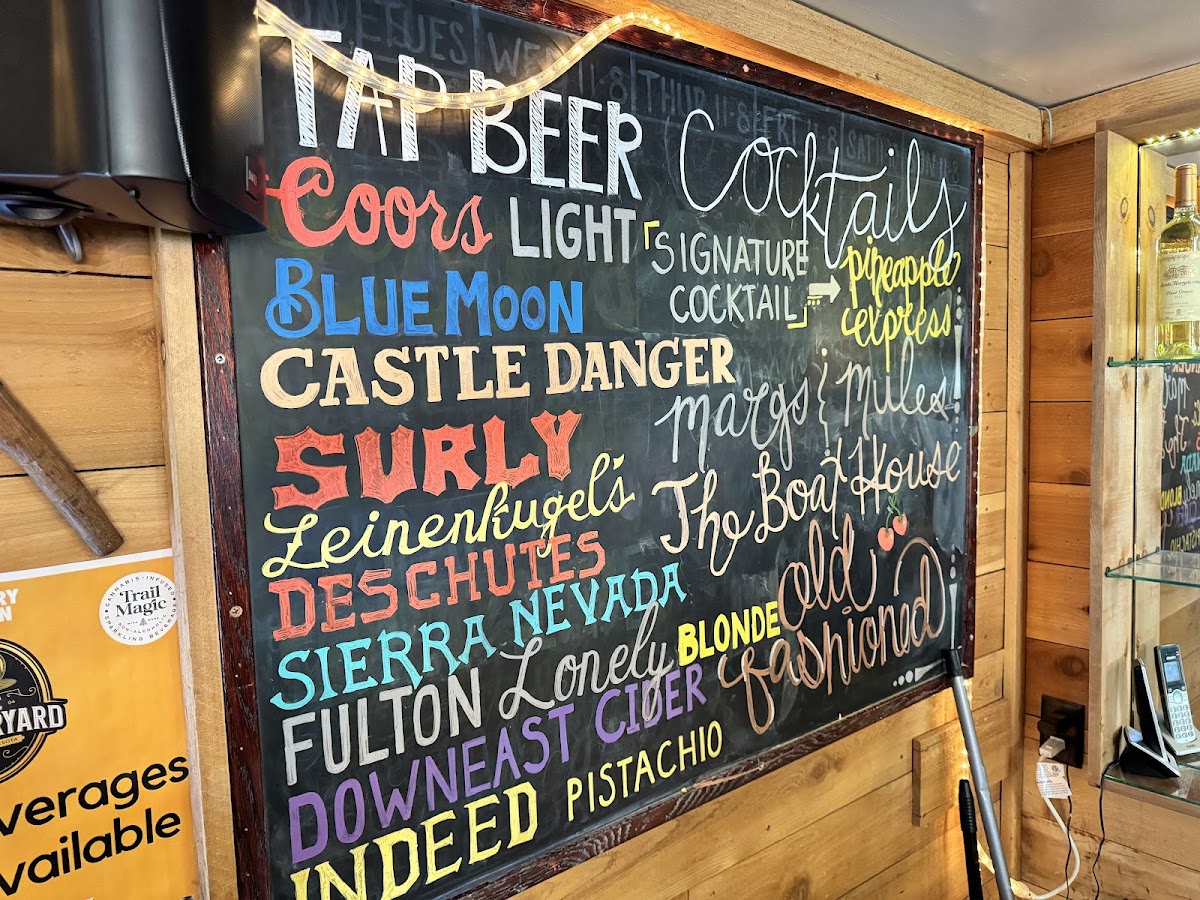 TAP BEER
Coors LIGHT
BLUE MOON
CASTLE DANGER
SURLY
Leinenkugel's
DESCHUTES
SIERRA NEVADA
FULTON Lonely BLONDE
DOWNEAST CIDER
INDEED PISTACHIO
Cocktails
SIGNATURE
COCKTAIL
pineapple
express
margs & mules
The Boat House
Old
fashioned
CANNABIS-INFUSED
Trail
Magic
NON-ALCOHOLIC
SPARKLING BEVERAGE
RYARD
verages
vailable